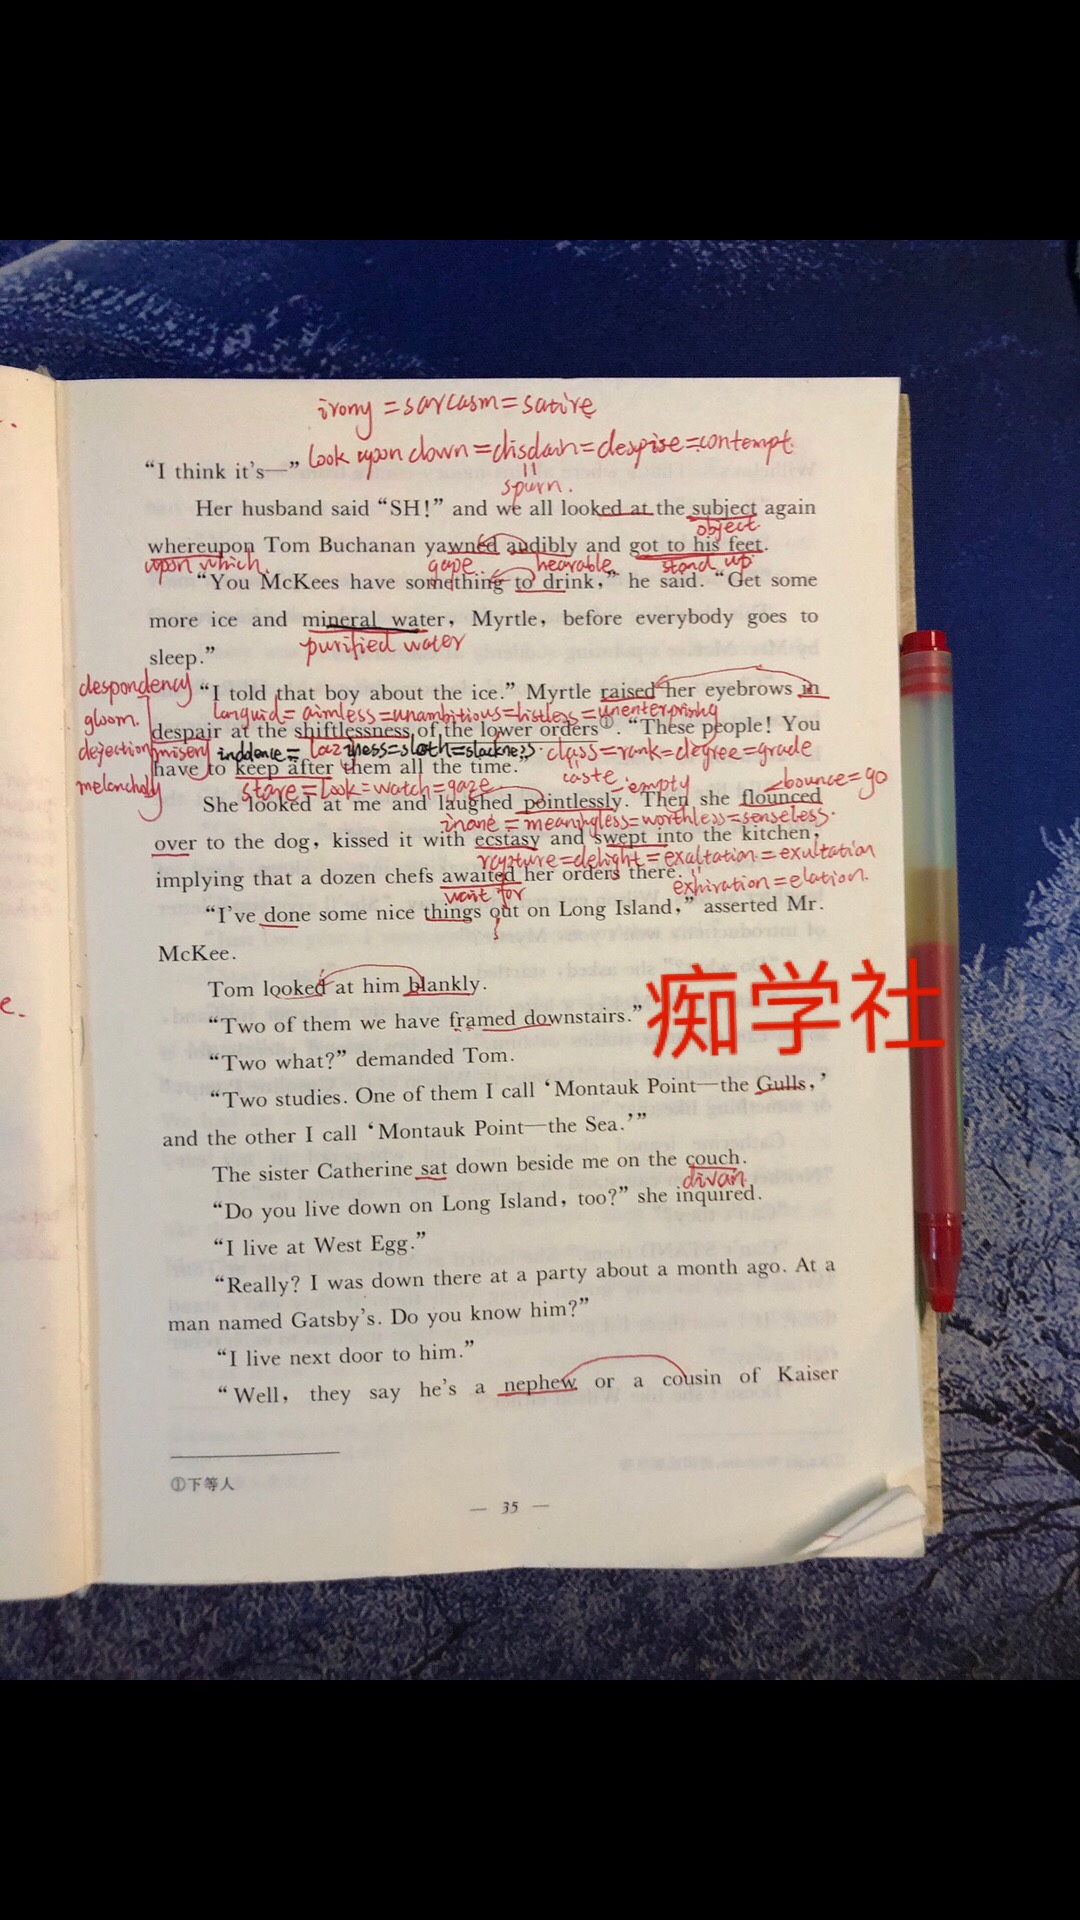 irony = sarcasm = satire
look upon down = disdain = despise = contempt.
"I think it's—"
spurn.
Her husband said "SH!" and we all looked at the subject again
object
whereupon Tom Buchanan yawned audibly and got to his feet.
upon which. gape hearable stand up
"You McKees have something to drink," he said. "Get some
more ice and mineral water, Myrtle, before everybody goes to
purified water
sleep."
despondency
"I told that boy about the ice." Myrtle raised her eyebrows in
gloom. languid = aimless = unambitious = listless = unenterprising
despair at the shiftlessness of the lower orders①. "These people! You
dejection misery = laziness = sloth = slackness. class = rank = degree = grade
have to keep after them all the time."
melancholy stare = look = watch = gaze caste = empty bounce = go
She looked at me and laughed pointlessly. Then she flounced
inane = meaningless = worthless = senseless.
over to the dog, kissed it with ecstasy and swept into the kitchen,
rapture = delight = exaltation = exultation
implying that a dozen chefs awaited her orders there.
wait for exhiration = elation.
"I've done some nice things out on Long Island," asserted Mr.
McKee.
Tom looked at him blankly.
"Two of them we have framed downstairs."
痴学社
"Two what?" demanded Tom.
"Two studies. One of them I call 'Montauk Point—the Gulls,'
and the other I call 'Montauk Point—the Sea.'"
The sister Catherine sat down beside me on the couch.
divan.
"Do you live down on Long Island, too?" she inquired.
"I live at West Egg."
"Really? I was down there at a party about a month ago. At a
man named Gatsby's. Do you know him?"
"I live next door to him."
"Well, they say he's a nephew or a cousin of Kaiser
①下等人
— 35 —
e.